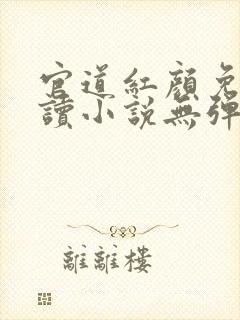 官道紅顏免
讀小說無彈
離離樓